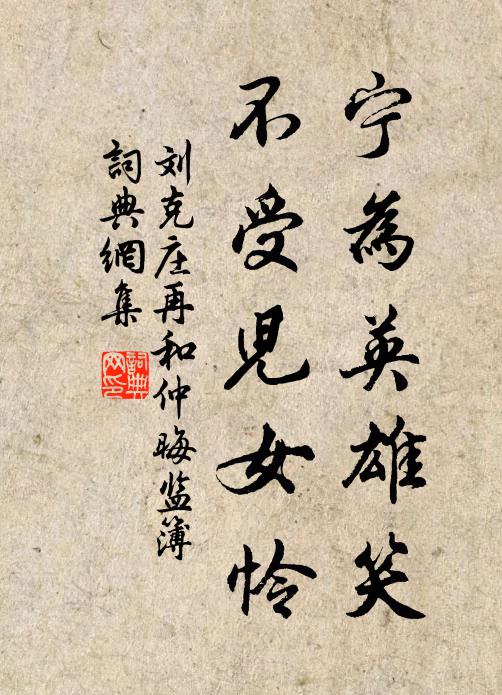 宁为英雄笑
不受児女怜
刘克庄再和仲晦监簿
詞典網集
詞典
网印